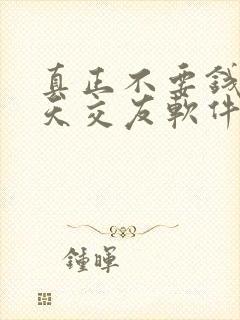 真正不要錢
天交友軟件
鍾暉